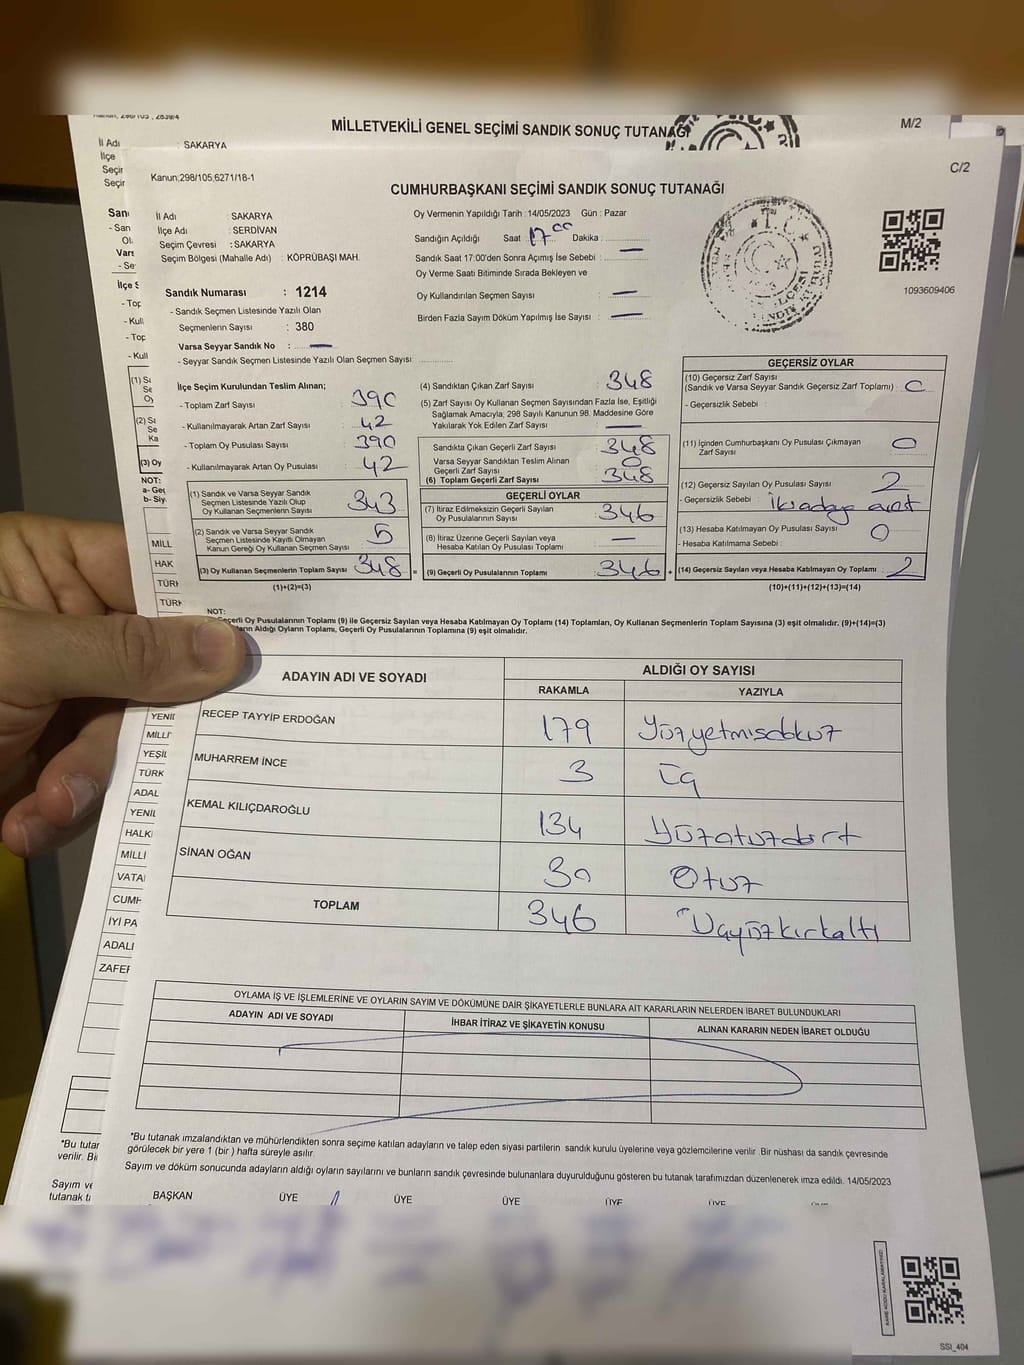 MİLLETVEKİLİ GENEL SEÇİMİ SANDIK SONUÇ TUTANAĞI
M/2
İl Adı : SAKARYA
İlçe
Seçir
Seçir
C/2
Kanun;298/105,6271/18-1
CUMHURBAŞKANI SEÇİMİ SANDIK SONUÇ TUTANAĞI
İl Adı : SAKARYA
İlçe Adı : SERDİVAN
Seçim Çevresi : SAKARYA
Seçim Bölgesi (Mahalle Adı) : KÖPRÜBAŞI MAH.
Sandık Numarası : 1214
- Sandık Seçmen Listesinde Yazılı Olan
Seçmenlerin Sayısı : 380
Varsa Seyyar Sandık No : —
- Seyyar Sandık Seçmen Listesinde Yazılı Olan Seçmen Sayısı:
Oy Vermenin Yapıldığı Tarih :14/05/2023 Gün : Pazar
Sandığın Açıldığı Saat : 17 00 Dakika :
Sandık Saat 17:00'den Sonra Açılmış İse Sebebi : —
Oy Verme Saati Bitiminde Sırada Bekleyen ve
Oy Kullandırılan Seçmen Sayısı : —
Birden Fazla Sayım Döküm Yapılmış İse Sayısı : —
1093609406
İlçe Seçim Kurulundan Teslim Alınan;
- Toplam Zarf Sayısı 390
- Kullanılmayarak Artan Zarf Sayısı 42
- Toplam Oy Pusulası Sayısı 390
- Kullanılmayarak Artan Oy Pusulası 42
(1) Sandık ve Varsa Seyyar Sandık
Seçmen Listesinde Yazılı Olup
Oy Kullanan Seçmenlerin Sayısı 343
(2) Sandık ve Varsa Seyyar Sandık
Seçmen Listesinde Kayıtlı Olmayan
Kanun Gereği Oy Kullanan Seçmen Sayısı 5
(3) Oy Kullanan Seçmenlerin Toplam Sayısı 348
(1)+(2)=(3)
(4) Sandıktan Çıkan Zarf Sayısı 348
(5) Zarf Sayısı Oy Kullanan Seçmen Sayısından Fazla İse, Eşitliği
Sağlamak Amacıyla; 298 Sayılı Kanunun 98. Maddesine Göre
Yakılarak Yok Edilen Zarf Sayısı —
Sandıkta Çıkan Geçerli Zarf Sayısı 348
Varsa Seyyar Sandıktan Teslim Alınan
Geçerli Zarf Sayısı 0
(6) Toplam Geçerli Zarf Sayısı 348
GEÇERLİ OYLAR
(7) İtiraz Edilmeksizin Geçerli Sayılan
Oy Pusulalarının Sayısı 346
(8) İtiraz Üzerine Geçerli Sayılan veya
Hesaba Katılan Oy Pusulası Toplamı —
= (9) Geçerli Oy Pusulalarının Toplamı 346 +
GEÇERSİZ OYLAR
(10) Geçersiz Zarf Sayısı
(Sandık ve Varsa Seyyar Sandık Geçersiz Zarf Toplamı) : 0
- Geçersizlik Sebebi :
(11) İçinden Cumhurbaşkanı Oy Pusulası Çıkmayan
Zarf Sayısı 0
(12) Geçersiz Sayılan Oy Pusulası Sayısı : 2
- Geçersizlik Sebebi :
(13) Hesaba Katılmayan Oy Pusulası Sayısı : 0
- Hesaba Katılmama Sebebi :
(14) Geçersiz Sayılan veya Hesaba Katılmayan Oy Toplamı : 2
(10)+(11)+(12)+(13)=(14)
NOT:
Geçerli Oy Pusulalarının Toplamı (9) ile Geçersiz Sayılan veya Hesaba Katılmayan Oy Toplamı (14) Toplamları, Oy Kullanan Seçmenlerin Toplam Sayısına (3) eşit olmalıdır. (9)+(14)=(3)
Aldığı Oyların Toplamı, Geçerli Oy Pusulalarının Toplamına (9) eşit olmalıdır.
ADAYIN ADI VE SOYADI
ALDIĞI OY SAYISI
RAKAMLA YAZIYLA
RECEP TAYYİP ERDOĞAN 179 Yüzyetmişdokuz
MUHARREM İNCE 3 Üç
KEMAL KILIÇDAROĞLU 134 Yüzotuzdört
SİNAN OĞAN 30 Otuz
TOPLAM 346 Üçyüzkırkaltı
OYLAMA İŞ VE İŞLEMLERİNE VE OYLARIN SAYIM VE DÖKÜMÜNE DAİR ŞİKAYETLERLE BUNLARA AİT KARARLARIN NELERDEN İBARET BULUNDUKLARI
ADAYIN ADI VE SOYADI İHBAR İTİRAZ VE ŞİKAYETİN KONUSU ALINAN KARARIN NEDEN İBARET OLDUĞU
*Bu tutanak imzalandıktan ve mühürlendikten sonra seçime katılan adayların ve talep eden siyasi partilerin sandık kurulu üyelerine veya gözlemcilerine verilir. Bir nüshası da sandık çevresinde
görülecek bir yere 1 (bir ) hafta süreyle asılır.
Sayım ve döküm sonucunda adayların aldığı oyların sayılarını ve bunların sandık çevresinde bulunanlara duyurulduğunu gösteren bu tutanak tarafımızdan düzenlenerek imza edildi. 14/05/2023
BAŞKAN ÜYE ÜYE ÜYE ÜYE ÜYE
SSI_404